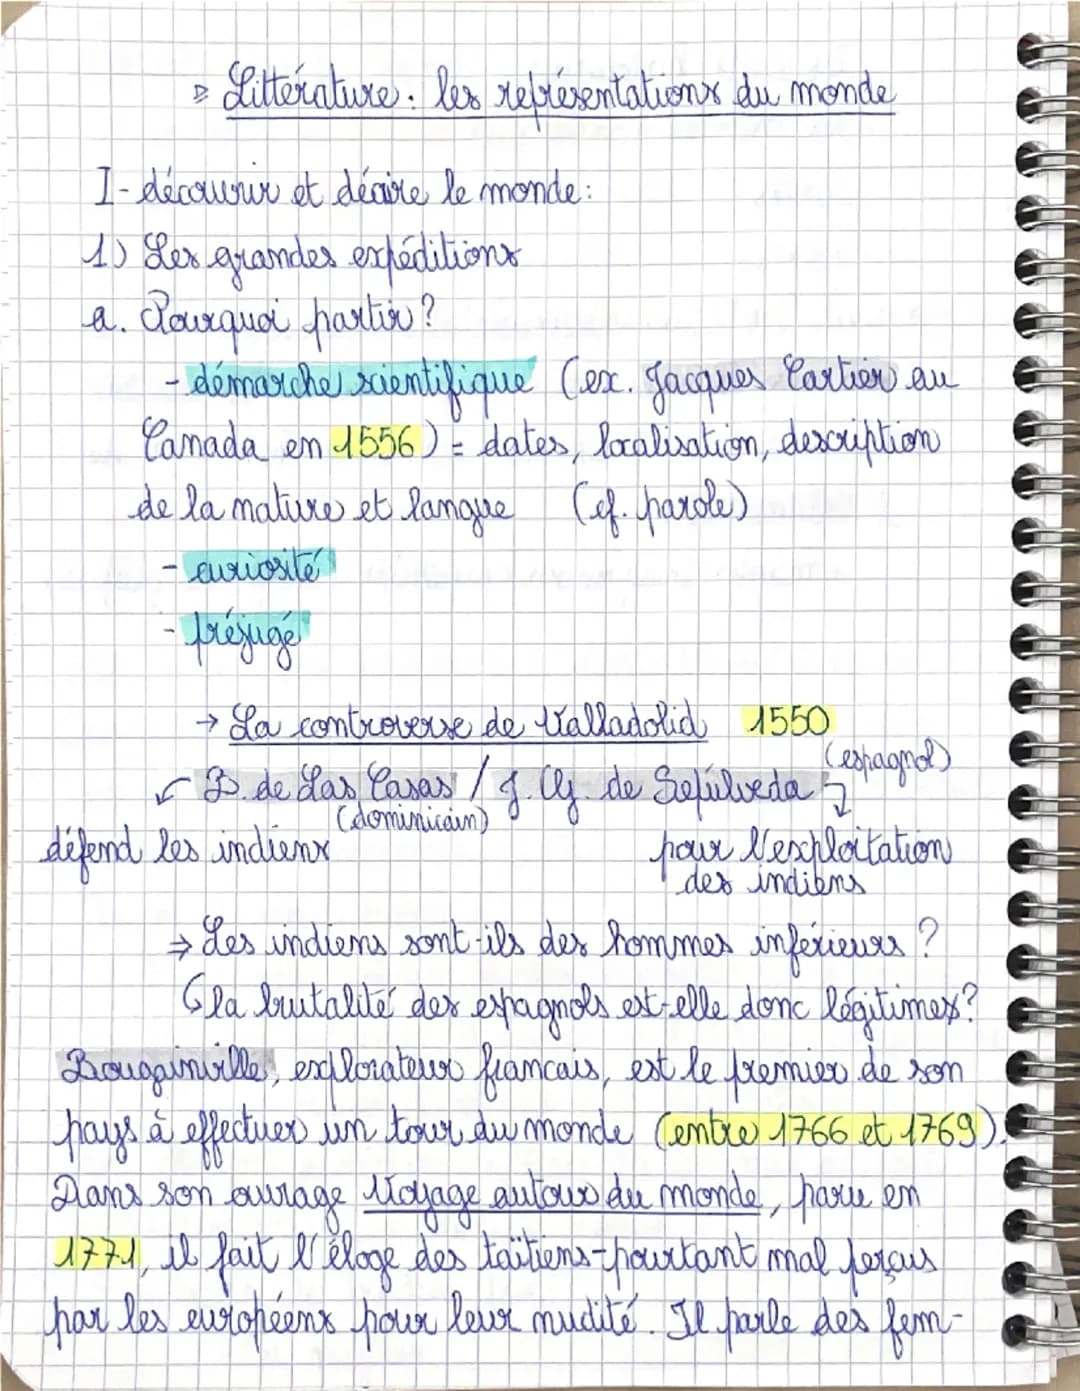 ▷ Littérature : les représentations du monde
I - découvrir et décrire le monde :
1) Les grandes expéditions
a. Pourquoi partir ?
- démarche scientifique (ex. Jacques Cartier au
Canada en 1556) = dates, localisation, description
de la nature et langue (cf. parole)
- curiosité
- préjugé
→ La controverse de Valladolid 1550
(espagnol)
B. de Las Casas / J. G. de Sepúlveda
(dominicain)
défend les indiens
pour l'exploitation
des indiens
⇒ Les indiens sont-ils des hommes inférieurs ?
↳ la brutalité des espagnols est-elle donc légitimes?
Bougainville, explorateur francais, est le premier de son
pays à effectuer un tour du monde (entre 1766 et 1769).
Dans son ouvrage Voyage autour du monde, paru en
1771, il fait l'éloge des taïtiens - pourtant mal perçus
par les européens pour leur nudité. Il parle des fem-